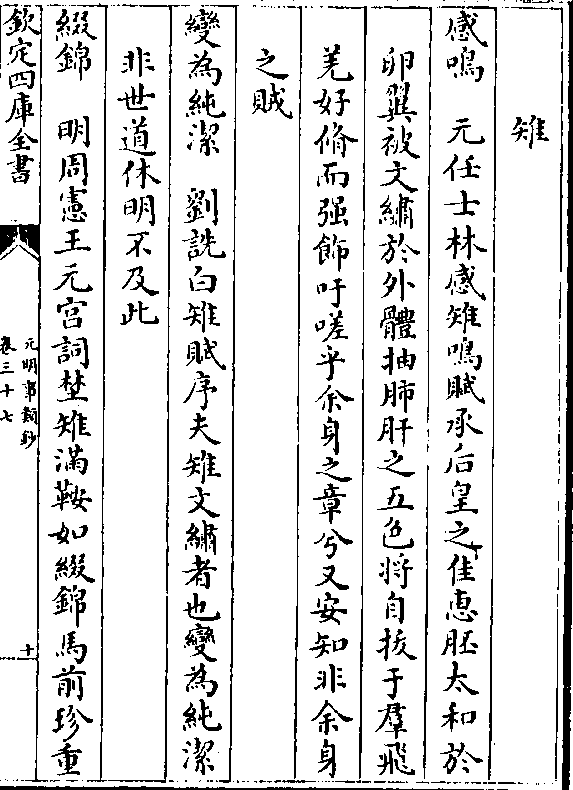 雉
感鳴　元任士林感雉鳴賦承后皇之佳惠胚太和於
卵翼被文繡於外體抽肺肝之五色将自拔于羣飛
羌好脩而强飾吁嗟乎余身之章兮又安知非余身
之賊
變為純潔　劉詵白雉賦序夫雉文繡者也變為純潔
非世道休明不及此
綴錦　明周憲王元宫詞埜雉滿鞍如綴錦馬前珍重
欽定四庫全書
元明事類鈔
卷三十七
十